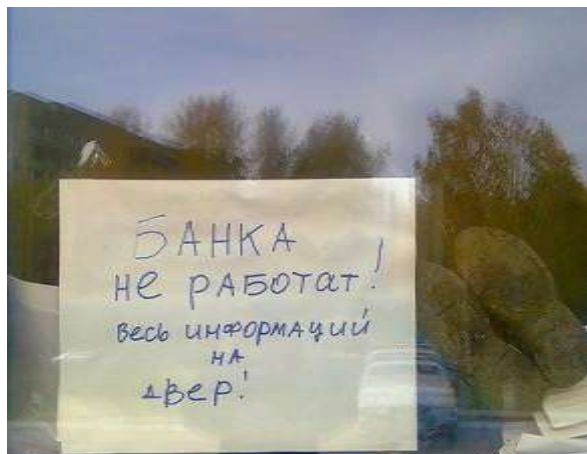 БАНКА
не РАБОТАТ!
весь ИНФОРМАЦИЙ
НА
ДВЕР!